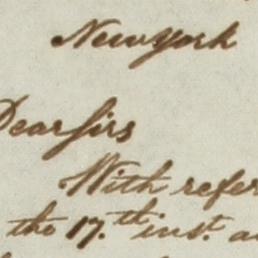 Newyork
Dearsirs
With refer
the 17.th inst. a